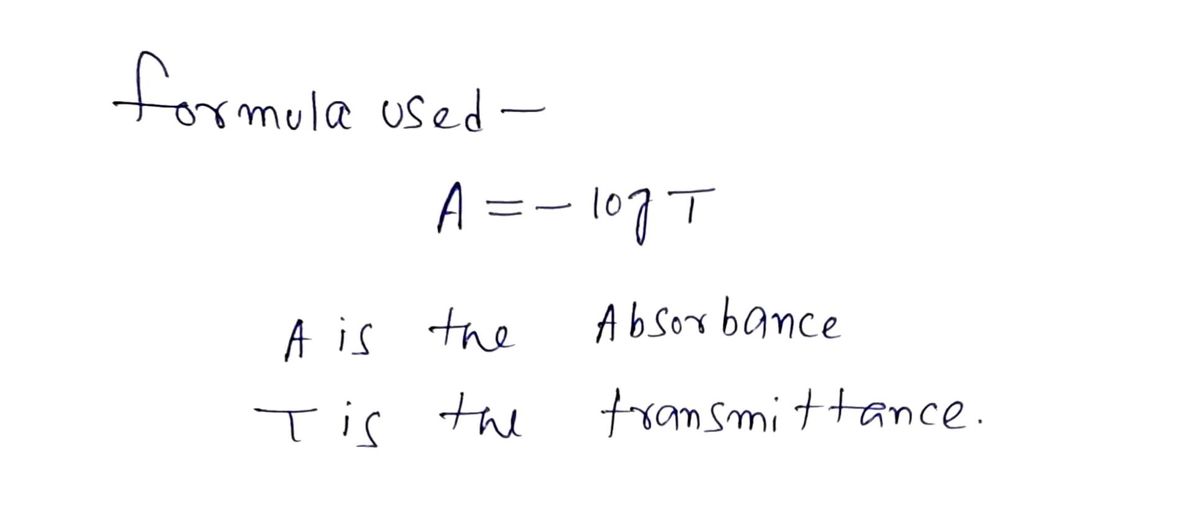 formula used -
A = - log T
A is the Absorbance
T is the transmittance.